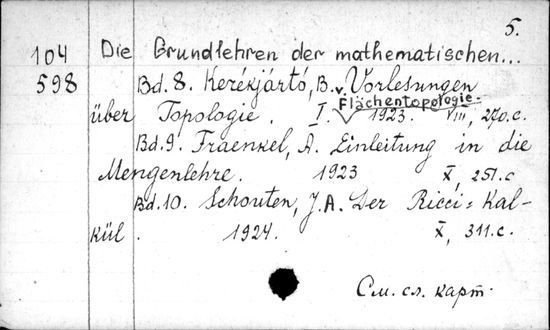 5.
104 Die Grundlehren der mathematischen...
598 Bd. 8. Kerékjártó, B. v. Vorlesungen
Flächentopologie.
über Topologie. I. 1923. VIII, 270.c.
Bd. 9. Fraenkel, A. Einleitung in die
Mengenlehre. 1923 X, 251.c
Bd. 10. Schouten, J.A. Der Ricci-Kal-
kül. 1924. X, 311.c.
См. сл. карт.